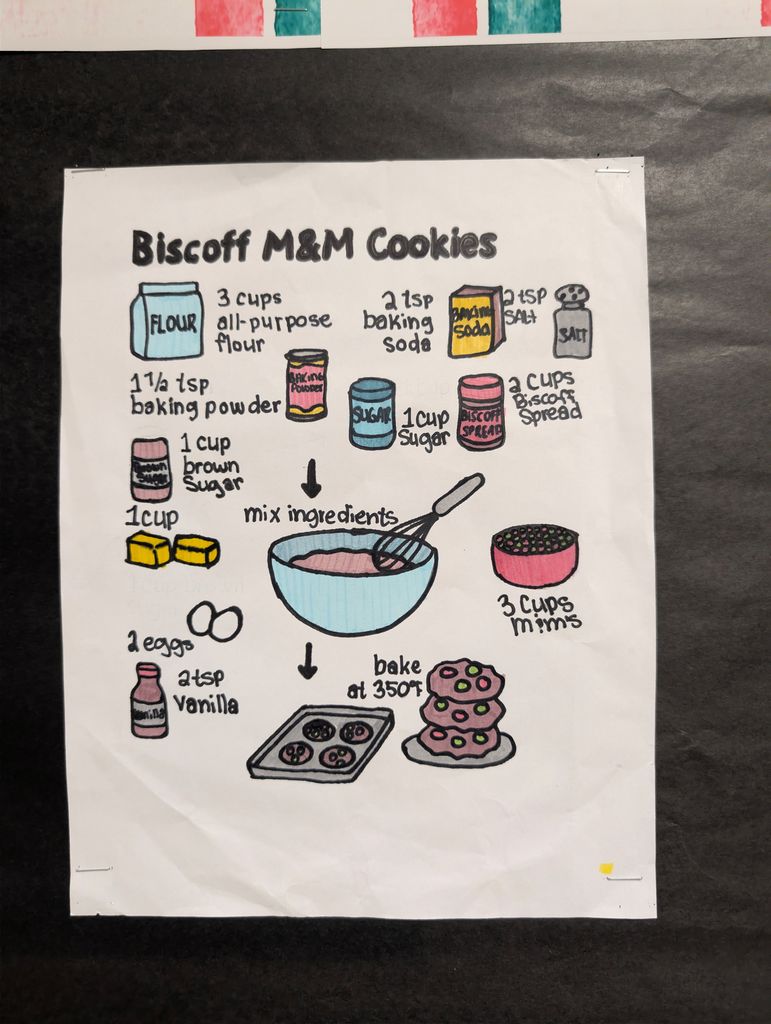 Biscoff M&M Cookies
FLOUR
3 cups
all-purpose
flour
2 tsp
baking
soda
BAKING
SODA
2 tsp
SALT
SALT
1 1/2 tsp
baking powder
BAKING
POWDER
SUGAR
1 cup
Sugar
BISCOFF
SPREAD
2 cups
Biscoff
Spread
Brown
Sugar
1 cup
brown
Sugar
1 cup
mix ingredients
3 cups
m&m's
2 eggs
Vanilla
2 tsp
Vanilla
bake
at 350°F